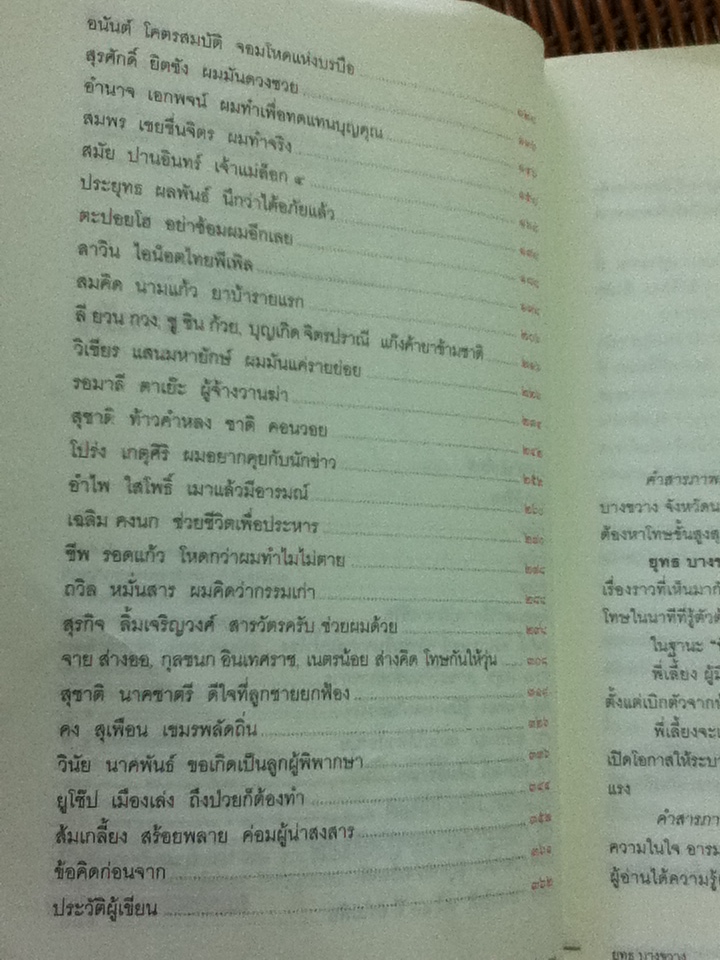 อนันต์ โคตรสมบัติ จอมโหดแห่งบรบือ
สุรศักดิ์ ยิตซัง ผมมันดวงซวย
อำนาจ เอกพจน์ ผมทำเพื่อทดแทนบุญคุณ
สมพร เชยชื่นจิตร ผมทำจริง
สมัย ปานอินทร์ เจ้าแม่ล็อก ๙
ประยุทธ ผลพันธ์ นึกว่าได้อภัยแล้ว
ตะปอยโฮ อย่าซ้อมผมอีกเลย
ลาวิน ไอน็อตไทยพีเพิล
สมคิด นามแก้ว ยาบ้ารายแรก ๒๐๖
ลี ยวน กวง, ชู ชิน ก้วย, บุญเกิด จิตรปราณี แก๊งค้ายาข้ามชาติ ๒๑๖
วิเชียร แสนมหายักษ์ ผมมันแค่รายย่อย ๒๒๖
รอมาลี ตาเย๊ะ ผู้จ้างวานฆ่า
สุชาติ ท้าวคำหลง ชาติ คอนวอย ๒๔๒
โปร่ง เกตุศิริ ผมอยากคุยกับนักข่าว ๒๕๒
อำไพ ใสโพธิ์ เมาแล้วมีอารมณ์ ๒๖๐
เฉลิม คงนก ช่วยชีวิตเพื่อประหาร ๒๗๐
ชีพ รอดแก้ว โหดกว่าผมทำไมไม่ตาย
ถวิล หมั่นสาร ผมคิดว่ากรรมเก่า
สุรกิจ ลิ้มเจริญวงศ์ สารวัตรครับ ช่วยผมด้วย
จาย ส่างออ, กุลชนก อินเทศราช, เนตรน้อย ส่างคิด โทษกันให้วุ่น
สุชาติ นาคชาตรี ดีใจที่ลูกชายยกฟ้อง
คง สุเพือน เขมรพลัดถิ่น ๓๒๖
วินัย นาคพันธ์ ขอเกิดเป็นลูกผู้พิพากษา ๓๓๖
ยูโซ๊ป เมืองเล่ง ถึงป่วยก็ต้องทำ ๓๔๔
ส้มเกลี้ยง สร้อยพลาย ค่อมผู้น่าสงสาร
ข้อคิดก่อนจาก ๓๖๑
ประวัติผู้เขียน ๓๖๒
คำสารภาพ
บางขวาง จังหวัดน
ต้องหาโทษชั้นสูงสุ
ยุทธ บางข
เรื่องราวที่เห็นมาก
โทษในนาทีที่รู้ตัว
ในฐานะ
พี่เลี้ยง ผู้มี
ตั้งแต่เบิกตัวจาก
พี่เลี้ยงจะ
เปิดโอกาสให้ระบา
แรง
คำสารภา
ความในใจ อารม
ผู้อ่านได้ความรู้
ยุทธ บางขวาง